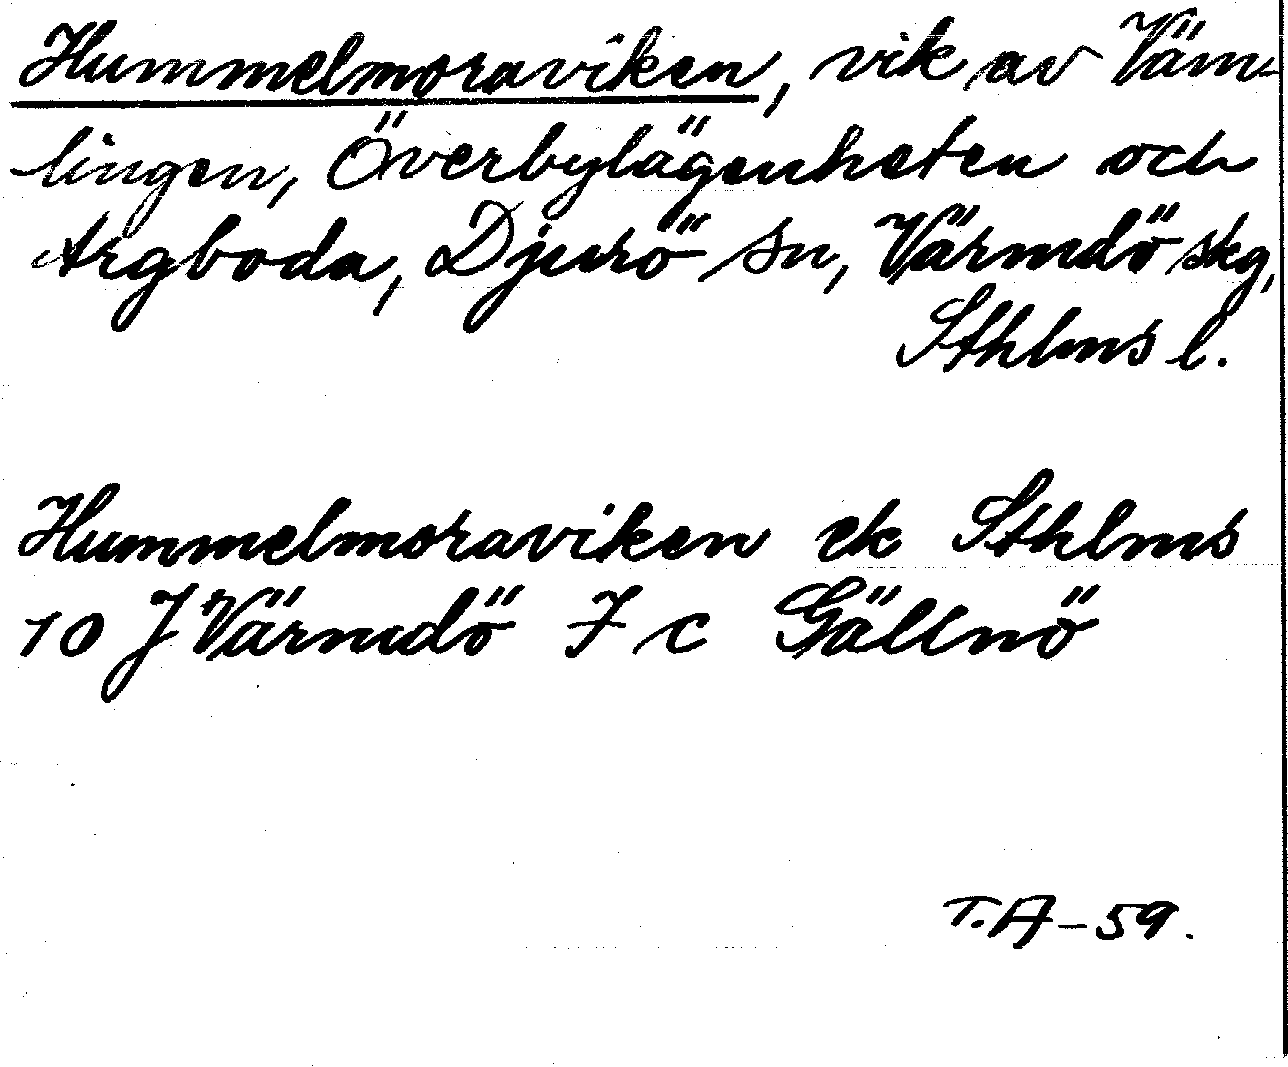 Hummelmoraviken, vik av Väm-
lingen, Överbylägenheten och
Argboda, Djurö sn, Värmdö skg,
Sthlms l.
Hummelmoraviken ek Sthlms
10 J Värmdö 7 c Gällnö
T.A-59.